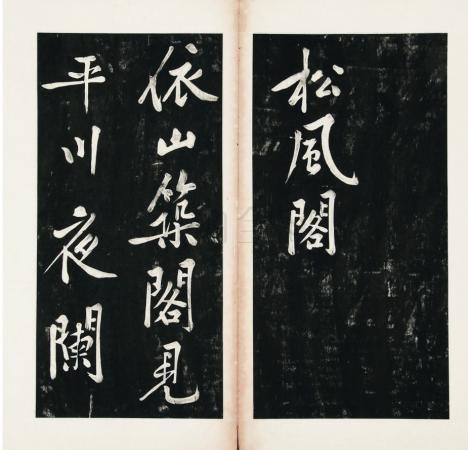 松風閣
依山築閣見
平川夜闌